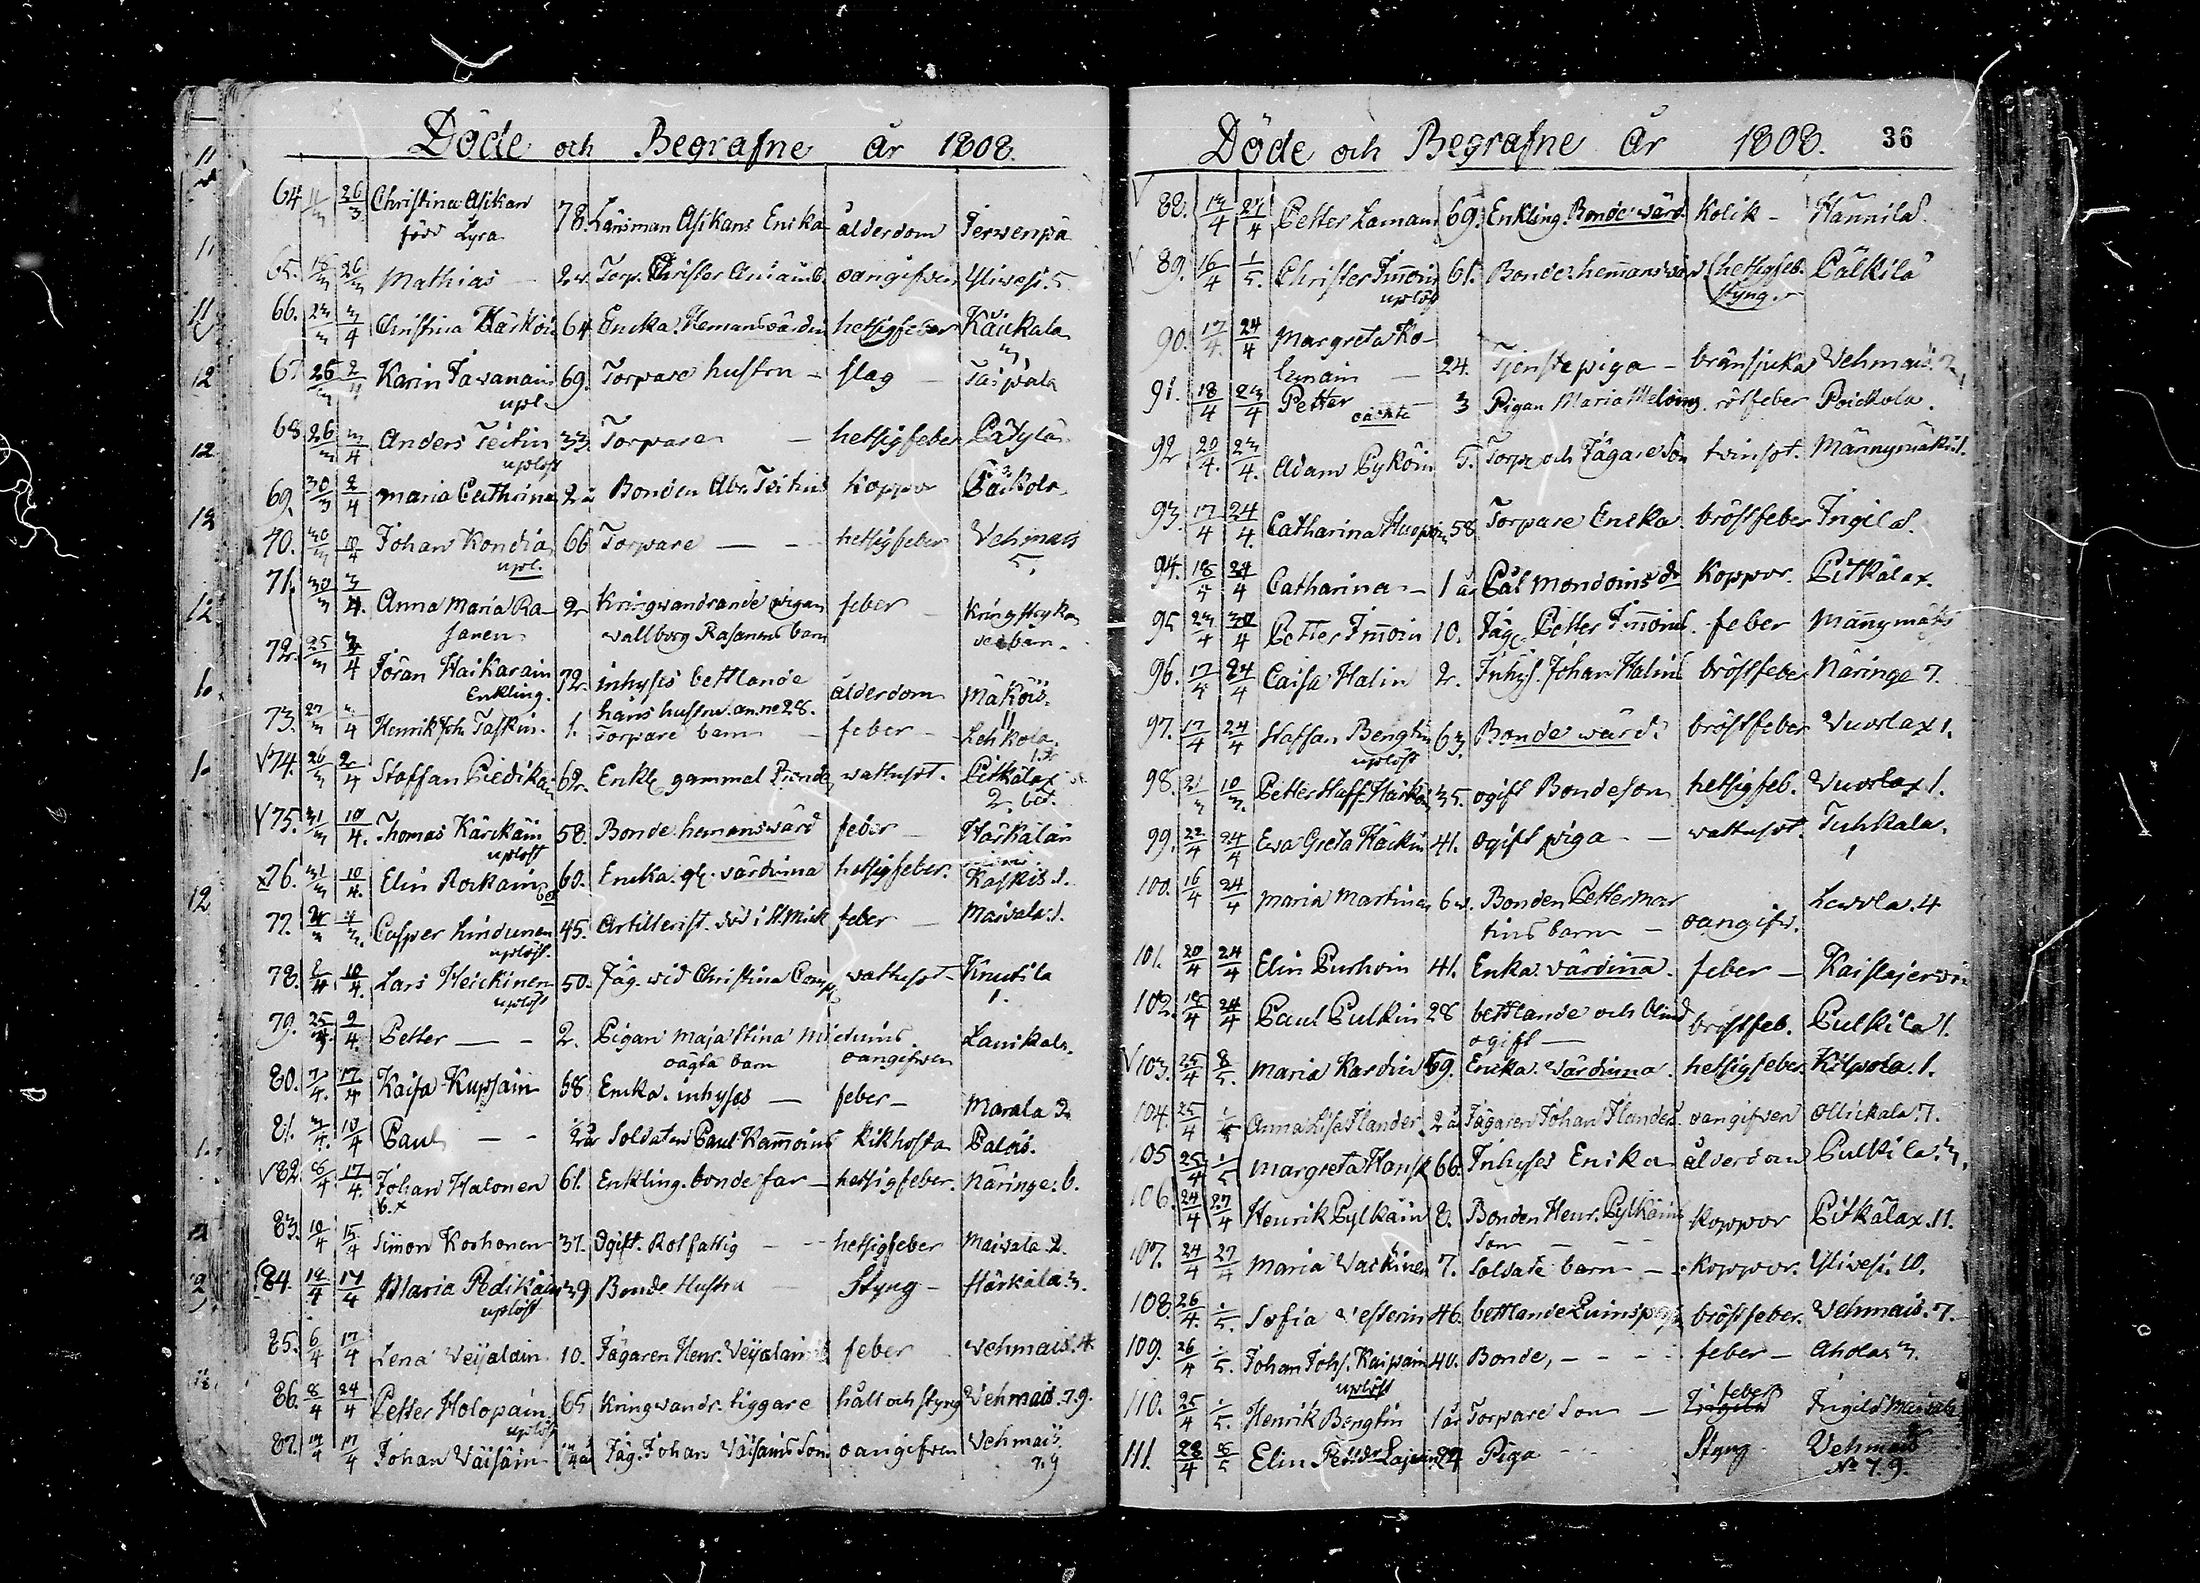 Döde och Begrafne år 1808.
64 11/3 26/3 Christina Asikan 78. Länsman Asikans Enka ålderdom Jerwenpä
född Lyra
65. 18/3 26/3 Mathias — 2 w. Torp. Christer oangifwen Yliwesi. 5
66. 23/3 3/4 Christina 64 Encka. Hemanswärdin hetsigfeber Käukala
67. 26/3 2/4 Karin Tawanain 69. Torpare hustru - slag - Taipala
upl. 3
68 26/3 3/4 Anders Teitin 33. Torpare — hetsigfeber Pätylä
uplöst
69. 30/3 2/4 Maria Cathrina 2 år Bonden Abr. Teitins koppor Päckola
70. 30/3 10/4 Johan Kondia 66 Torpare — — hetsigfeber Vehmais
upl. 5,
71. 30/3 3/4. Anna Maria Ra- 2 Kringwandrande pigan feber — kringstryka
sanen wallborg Rasanens barn barn.
72. 25/3 3/4 Jöran Haikarain 72. inhyses bettlande ålderdom Mäköis.
Enkling. hans hustru. an. no 28. 11
73. 27/3 3/4 Henrik Joh. Taskin. 1. Torpare barn — feber - Lehkola.
V74. 26/3 2/4 Staffan Piedikäin 62. Enkl. gammal Bonde wattusot. Pitkälax
2. bet.
V75. 31/3 10/4. Thomas Kärckäin 58. Bonde. hemanswärd feber — Härkälä
uplöst
x76. 31/3 10/4. Elin Rockain 60. Encka. gl. wärdinna hetsigfeber. Kaskis 1.
77. Casper Lindunen 45. Artillerist. död i St. Mick feber — Maivala. 1.
uplöst.
78. 2/4 10/4. Lars Heickinen 50. Jäg. wid Christina Comp. wattusot - Knutila
uplöst 1.
79. 25/3 9/4. Petter — - 2. Pigan Maja Stina Lauikala.
oägta barn oangifwen
80. 7/4. 17/4 Kaisa Kupsain 58 Encka. inhyses — feber — Marala 2.
81. 3/4. 10/4 Paul — - 2 år Soldaten Paul Kamoins kikhosta Palois.
V82. 8/4 17/4. Johan Halonen 61. Enkling. bonde far — hetsigfeber. Näringe. 6.
b. x
83. 10/4 15/4 Simon Korhonen 37. Ogift. Rotfattig - - hetsigfeber Maivala 2.
84 12/4 17/4 Maria Pedikäin 39 Bonde Hustru Styng - Härkälä. 3.
uplöst
85. 6/4 17/4 Lena Veijalain 10. Jägaren Henr. Veijalain feber Vehmais. 4
86. 8/4 24/4 Petter Holopain 65 Kringwandr. tiggare håll och styng Vehmais. 7. 9.
uplöst
87. 14/4 17/4 Johan Väisäin Jäg. Johan Väisäins son oangifwen Vehmais.
7. 9
Döde och Begrafne År 1808. 36
V 88. 13/4 24/4 Petter Lamain 69. Enkling. Bonde wärd Kolik - Hännilä.
V 89. 16/4 1/5. Christer Imoin 61. Bonde. hemanswärd hetsigfeb. Pälkilä
uplöst styng.
90. 17/4. 24/4 Margreta Ko-
lemain — 24. Tjenstepiga - brännsjuka Vehmais. 7
91. 18/4 23/4 Petter — 3 Pigan Maria Meloins rötfeber Poickola.
oäckta
92 20/4. 23/4. Adam Pyköin 5. Torp. och Jägare Son twinsot. Männymäki. 1.
93. 17/4 24/4. Catharina 58. Torpare Encka. bröstfeber Ingila 1.
94. 18/4 24/4 Catharina — 1 år Pål Mondoins dr koppor. Pitkälax.
95 23/4 30/4 Petter Imoin 10. Jäg. Petter Imoins. feber Männymäki
96. 17/4 24/4 Caisa Halin 2. Inhys. Johan Halins bröstfeber Näringe 7.
97. 17/4 24/4 Staffan Bengtin 63. Bonde wärd. bröstfeber Vuorlax 1.
uplöst
98. 21/3 10/3. Petter Staff. Härkö 35. ogift Bondeson hetsigfeb. Vuorlax 1.
99. 22/4 24/4 Ewa Greta Häckin 41. Ogift piga — — wattusot. Tuhkala.
1
100. 16/4 24/4 Maria Martina 6 w. Bonden Petter Mar- oangifw. Lavola. 4
tins barn —
101. 20/4 24/4 Elin Purhoin 41. Enka. wärdinna. feber — Kaislajerwi
102. 18/4 24/4 Paul Pulkin 28 bettlande och blind bröstfeb. Pulkila 1.
ogift —
V103. 25/4 8/5. Maria Kardin 59. Encka. wärdinna. hetsigfeber. Kilpola. 1.
104. 25/4 1/5 Anna Lisa Flander 2 år Jägaren Johan Flanders. oangifven Ollickala 7.
105 25/4 1/5 Margreta Hansk 66. Inhyses Encka ålderdom Pulkila. 3.
106. 24/4 27/4 Henrik Pylkäin 8. Bonden Henr. Pylkäins koppor Pitkälax. 11.
Son
107. 24/4 27/4 Maria Vaickinen 7. Soldate barn — koppor. Yliwesi. 10.
108. 26/4. 1/5. Sofia Vesterin 46. bettlande bröstfeber. Vehmais. 7.
109. 26/4 1/5. Johan Johs. Kaipain 40. Bonde, - - - feber — Ahola 3.
uplöst
110. 25/4 1/5. Henrik Bengtin 1 år Torpare Son — feber Ingila Maivala
111. 28/4 8/5 Elin Peds Dr Lajuin 24 Piga Styng Vehmais
No 7. 9.